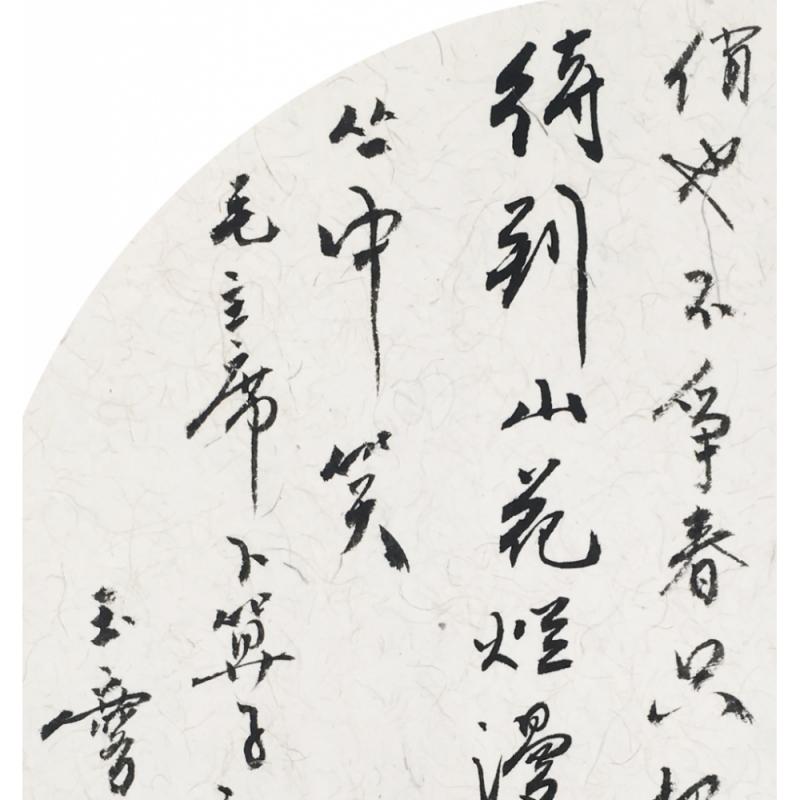 俏也不争春只
待到山花烂漫
丛中笑
毛主席卜算子
玉雪